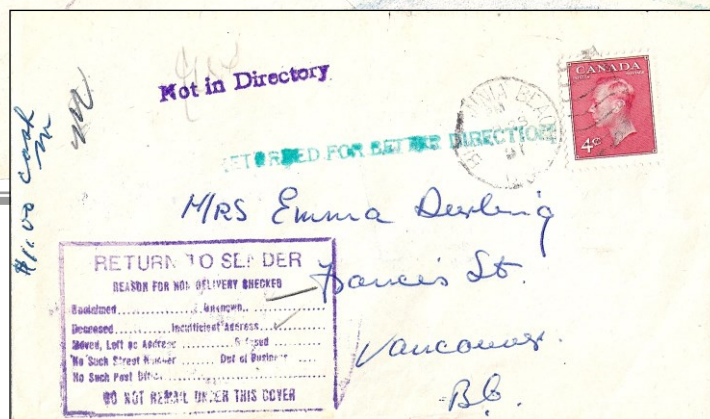 Not in Directory
CANADA
4¢
RETURNED FOR BETTER DIRECTION
$1.00 cash
in
MRS Emma Derling
Francis St.
Vancouver.
B.C.
RETURN TO SENDER
REASON FOR NON DELIVERY CHECKED
Unclaimed.............Unknown..............
Deceased..........Insufficient Address..........
Moved, Left no Address..........Refused..........
No Such Street Number ....... Out of Business ....
No Such Post Office..............................
DO NOT REMAIL UNDER THIS COVER